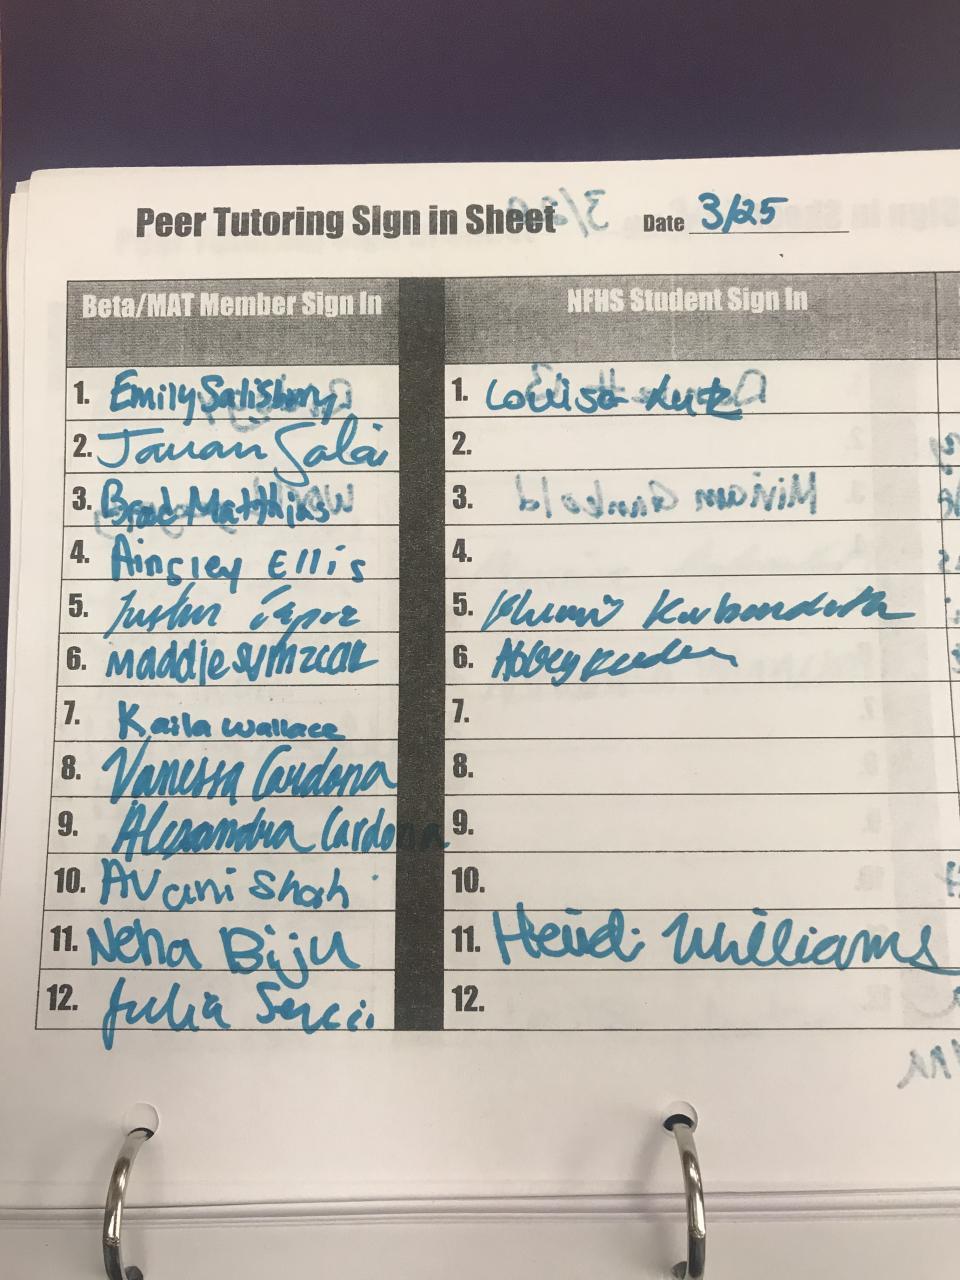 Peer Tutoring Sign in Sheet Date 3/25
Beta/MAT Member Sign In NFHS Student Sign In
1. Emily Salisbury 1. Louisa Lutz
2. 2.
3. Brad Matthias 3.
4. Ainsley Ellis 4.
5. Justin 5.
6. Maddie 6. Abbey
7. Kaila Wallace 7.
8. Vanessa Cardona 8.
9. Alexandra Cardona 9.
10. Avani Shah 10.
11. Neha Biju 11. Heidi Williams
12. Julia 12.